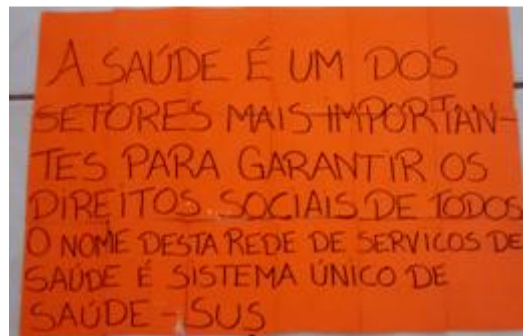 A SAÚDE É UM DOS
SETORES MAIS IMPORTAN-
TES PARA GARANTIR OS
DIREITOS SOCIAIS DE TODOS
O NOME DESTA REDE DE SERVICOS DE
SAÚDE É SISTEMA ÚNICO DE
SAÚDE - SUS